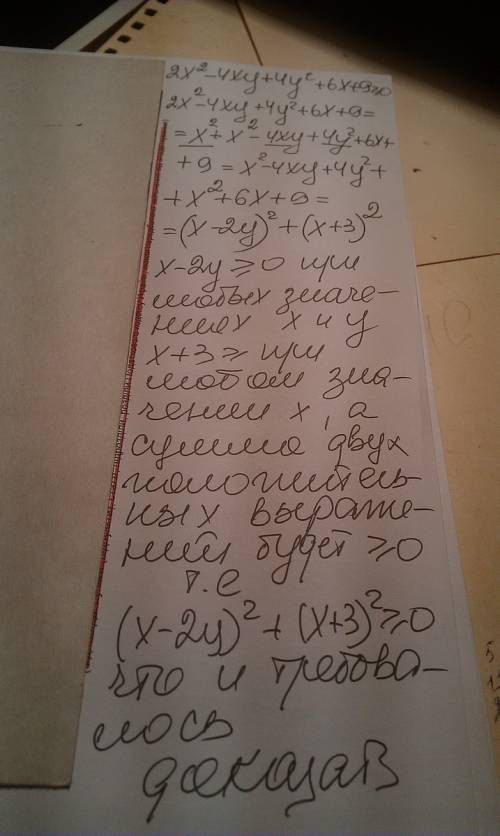 2x²-4xy+4y²+6x+9≥0
2x²-4xy+4y²+6x+9=
=x²+x²-4xy+4y²+6x+
+9=x²-4xy+4y²+
+x²+6x+9=
=(x-2y)²+(x+3)²
x-2y≥0 при
любых значе-
ниях x и y
x+3≥ при
любом зна-
чении x, а
сумма двух
положитель-
ных выраже-
ний будет ≥0
т.е
(x-2y)²+(x+3)²≥0
что и требова-
лось
доказать